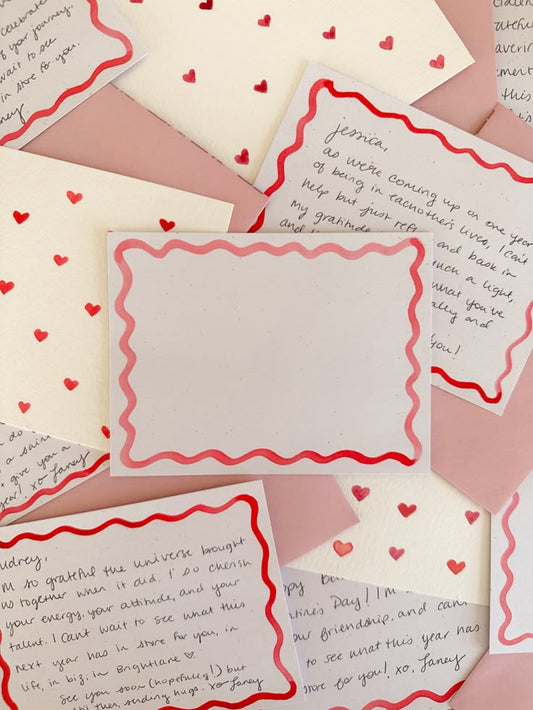 celebrate
of your journey.
wait to see
in store for you.
ney
grateful
ement
this
jessica,
as we're coming up on one year
of being in eachother's lives, I can't
help but just refl
my gratitude and bask in
such a light,
what you've
and
you!
give you a
year! xo Janey
udrey,
I'm so grateful the universe brought
us together when it did. I so cherish
your energy, your attitude, and your
talent. I can't wait to see what this
next year has in store for you, in
life, in biz, in Brightlane ♡.
See you soon (hopefully!) but
til then, sending hugs. xo Janey
ppy
ntine's Day! I'm
our friendship, and can't
to see what this year has
store for you! xo, Janey